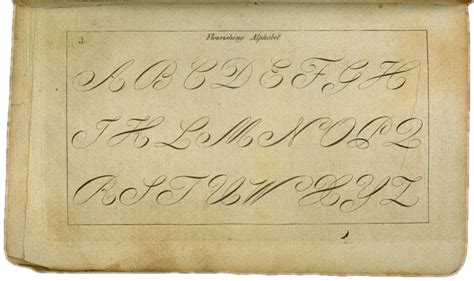 Flourishing Alphabet
A B C D E F G H
I K L M N O P Q
R S T U W X Y Z